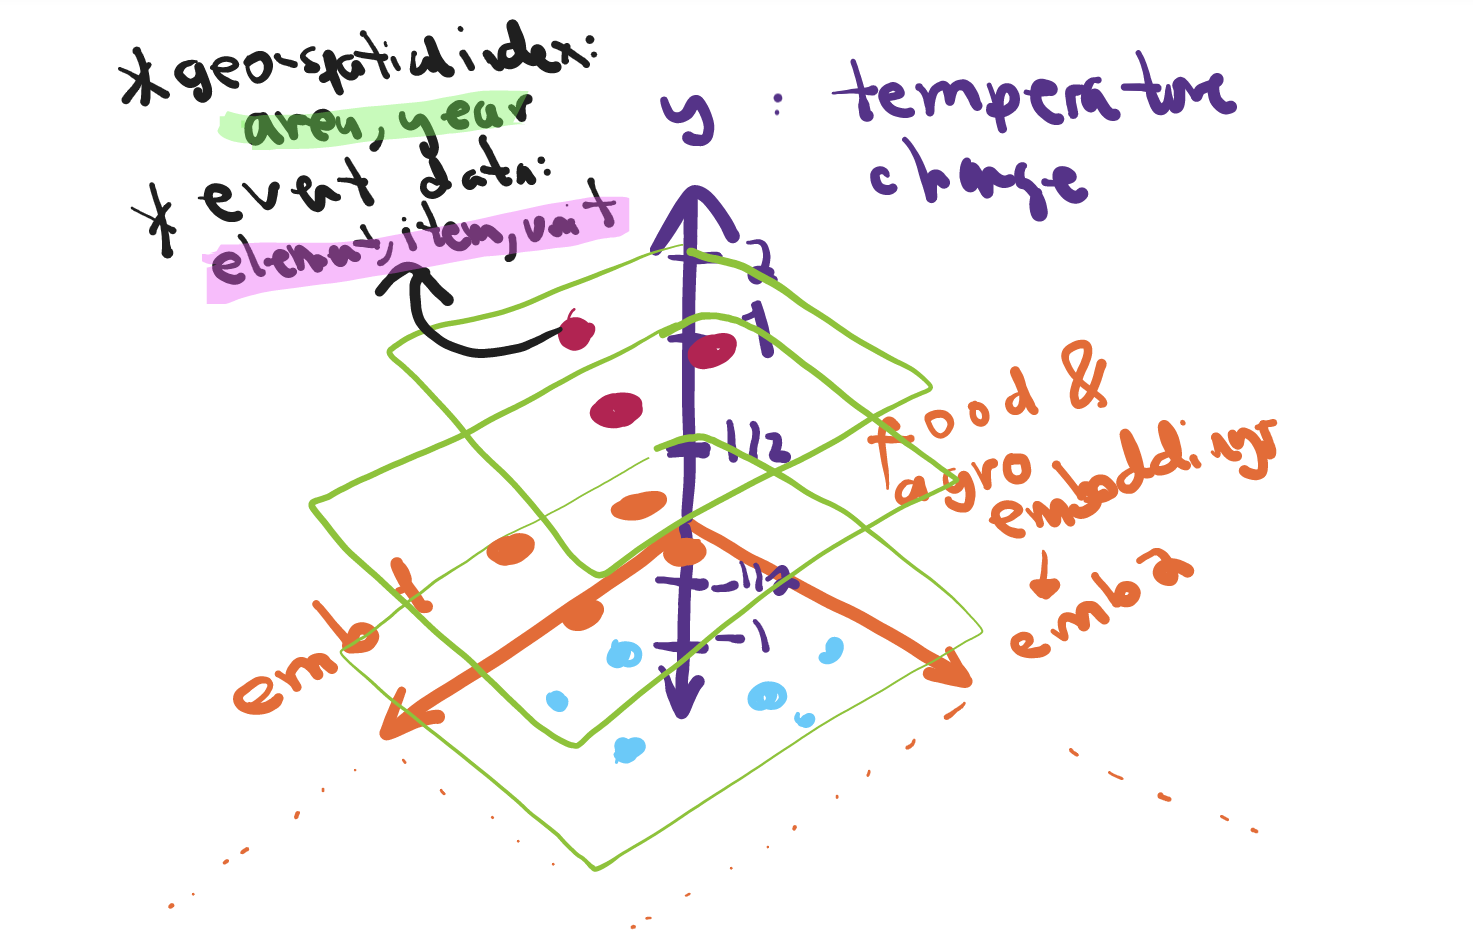 * geo-spatial index:
area, year
* event data:
element, item, unit
y : temperature
change
2
1
1/2
-1/2
-1
food &
agro
embeddings
↓
emb 2
emb 1